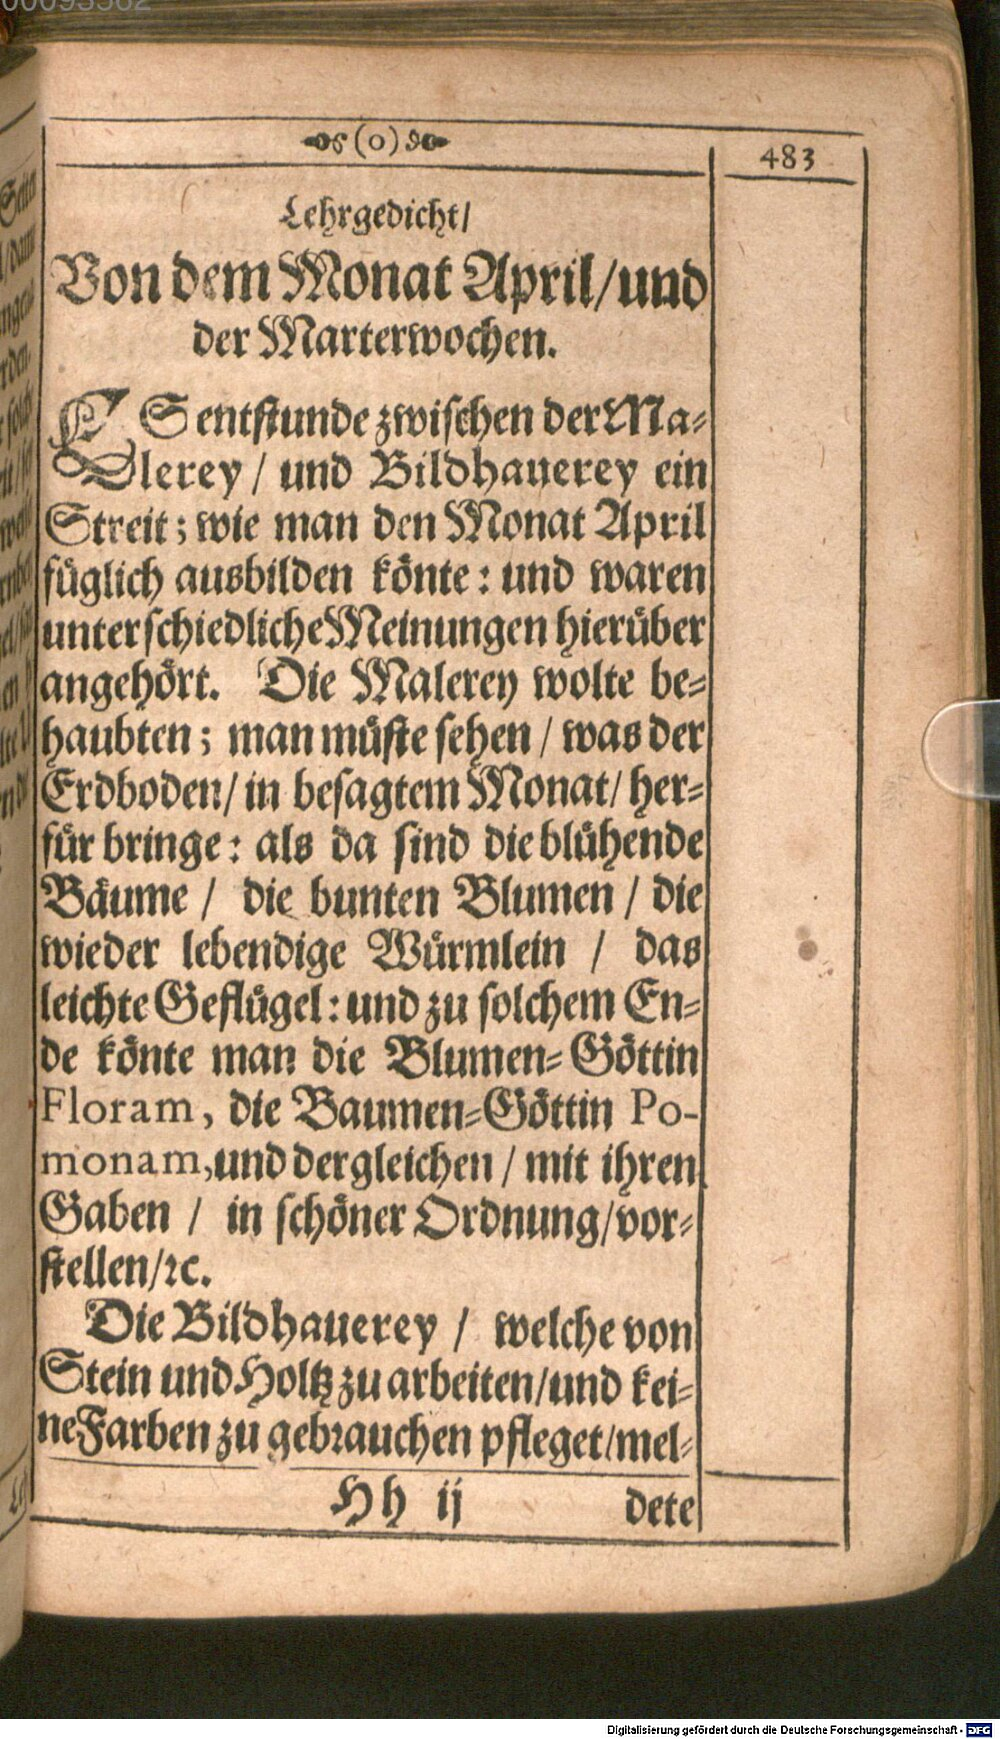 00093562
(0)
483
Lehrgedicht/
Von dem Monat April/ und
der Marterwochen.
ES entstunde zwischen der Ma-
lerey / und Bildhauerey ein
Streit; wie man den Monat April
füglich ausbilden könte: und waren
unterschiedliche Meinungen hierüber
angehört. Die Malerey wolte be-
haubten; man müste sehen / was der
Erdboden/ in besagtem Monat/ her-
für bringe: als da sind die blühende
Bäume / die bunten Blumen / die
wieder lebendige Würmlein / das
leichte Geflügel: und zu solchem En-
de könte man die Blumen-Göttin
Floram, die Baumen-Göttin Po-
monam, und dergleichen / mit ihren
Gaben / in schöner Ordnung/ vor-
stellen/ ꝛc.
Die Bildhauerey / welche von
Stein und Holtz zu arbeiten/ und kei-
ne Farben zu gebrauchen pfleget/ mel-
Hh ij dete
Digitalisierung gefördert durch die Deutsche Forschungsgemeinschaft - DFG